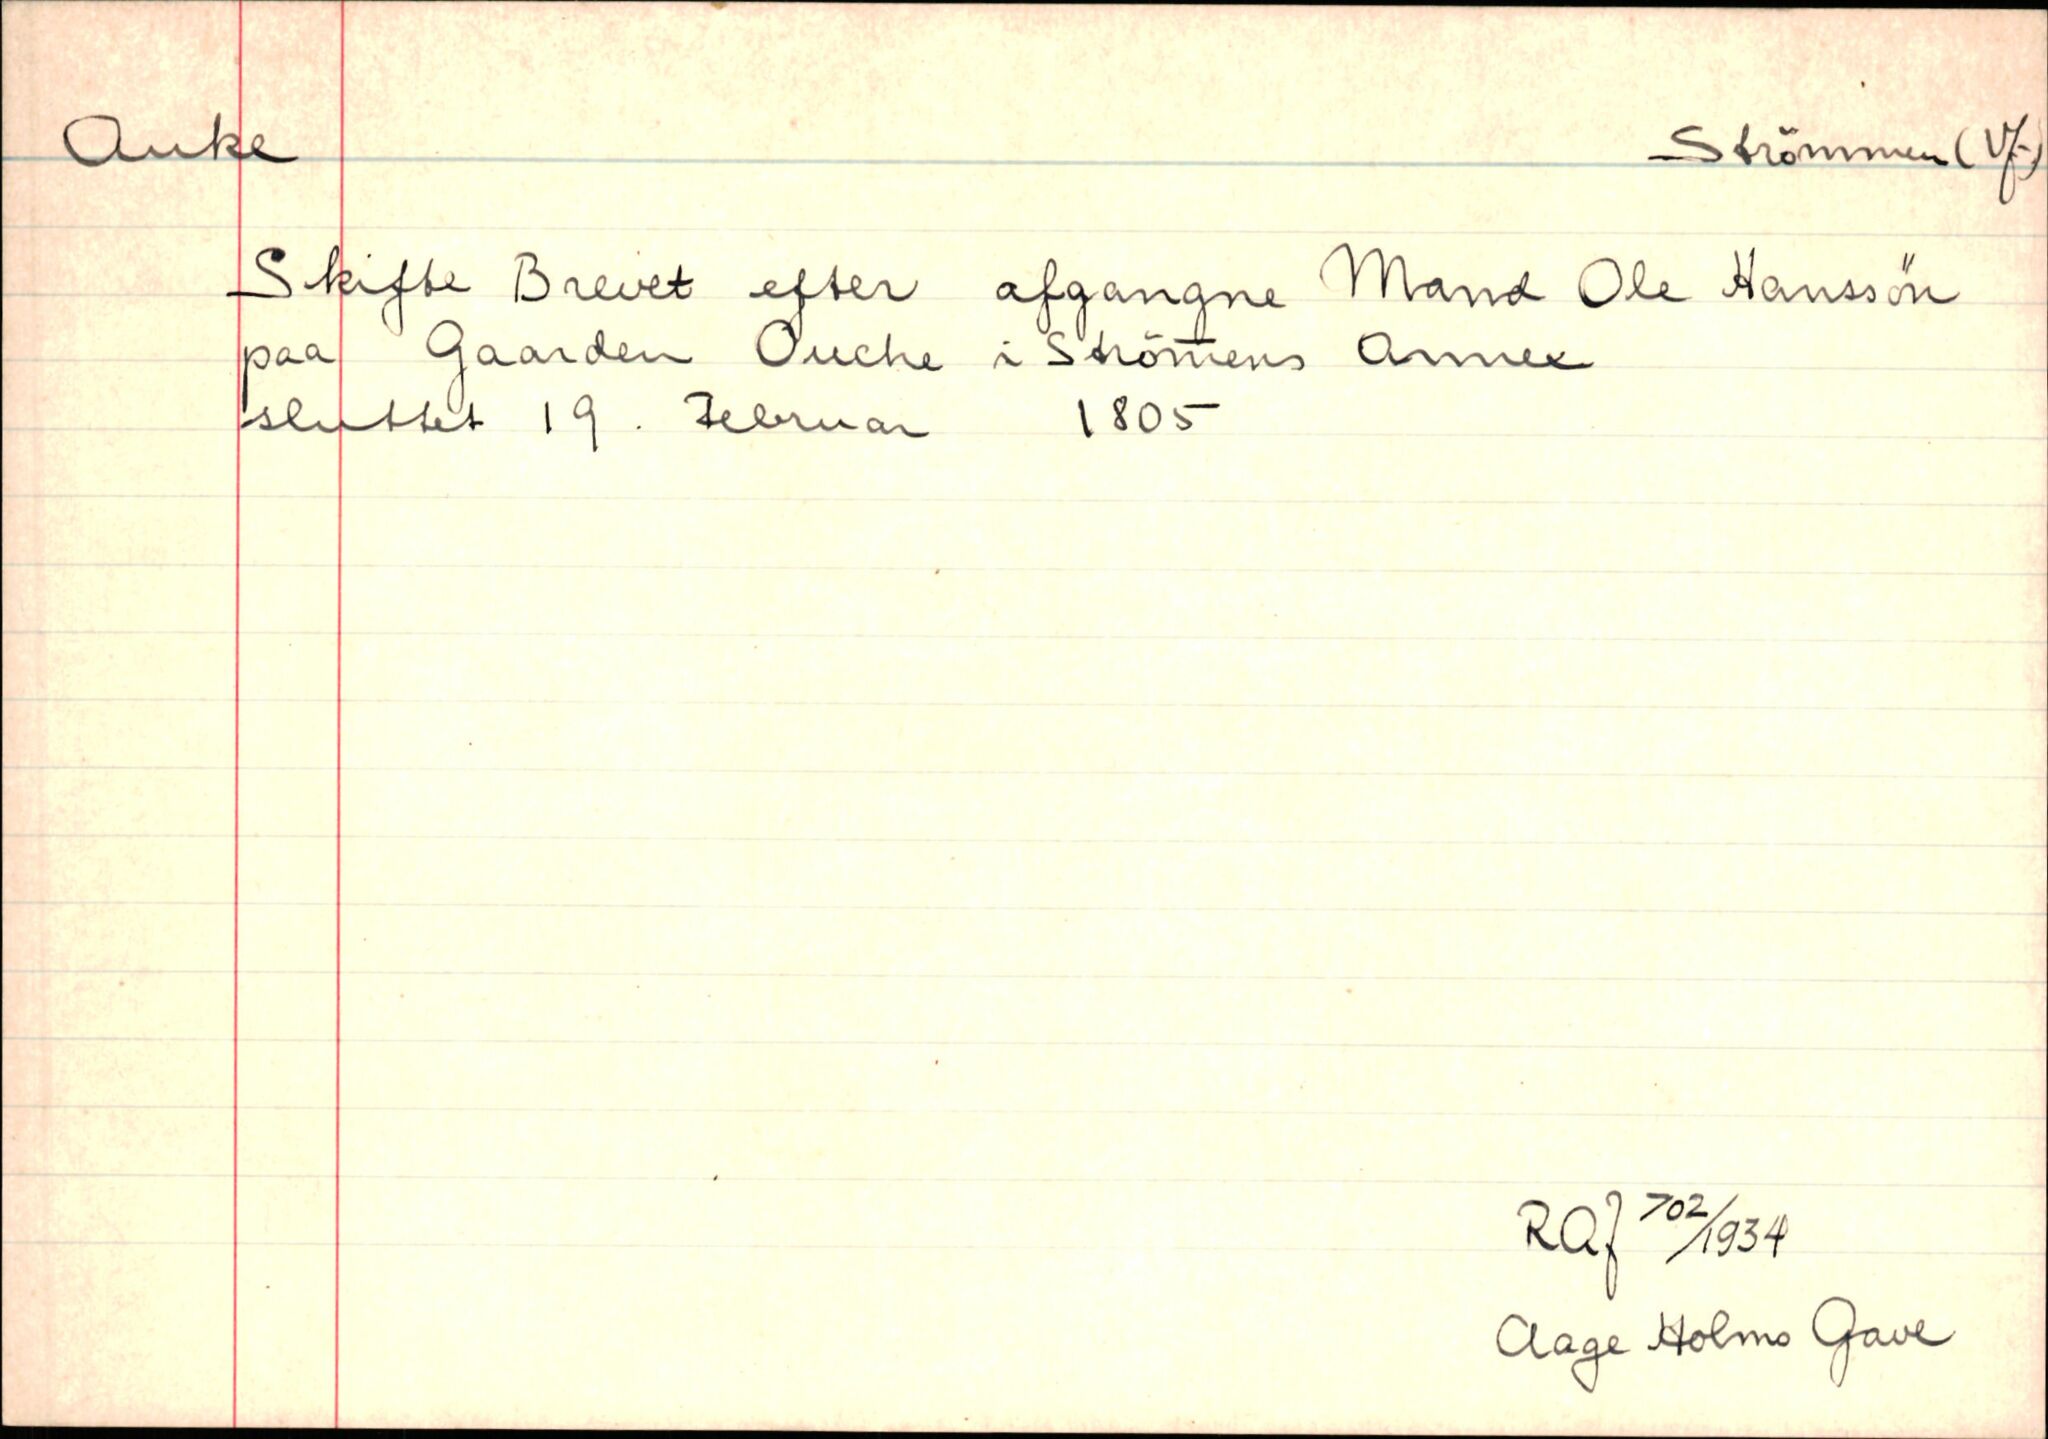 Auke Strömmen (Vf.)
Skifte Brevet efter afgangne Mand Ole Hanssön
paa Gaarden Ouche i Strömens Annex
sluttet 19. Februar 1805
RAJ 702/1934
Aage Holms Gave